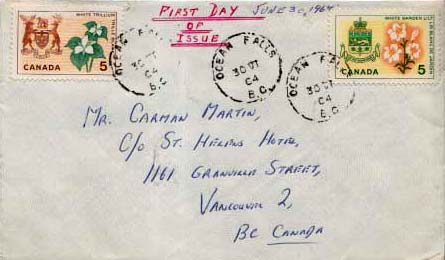 WHITE TRILLIUM
CANADA 5
FIRST DAY
OF
ISSUE
JUNE 30, 1964
WHITE GARDEN LILY
CANADA 5
OCEAN FALLS
B.C.
OCEAN FALLS
30 VI
64
B.C.
OCEAN FALLS
30 VI
64
B.C.
Mr. Carman Martin,
c/o St. Helens Hotel,
1161 Granville Street,
Vancouver 2,
BC Canada